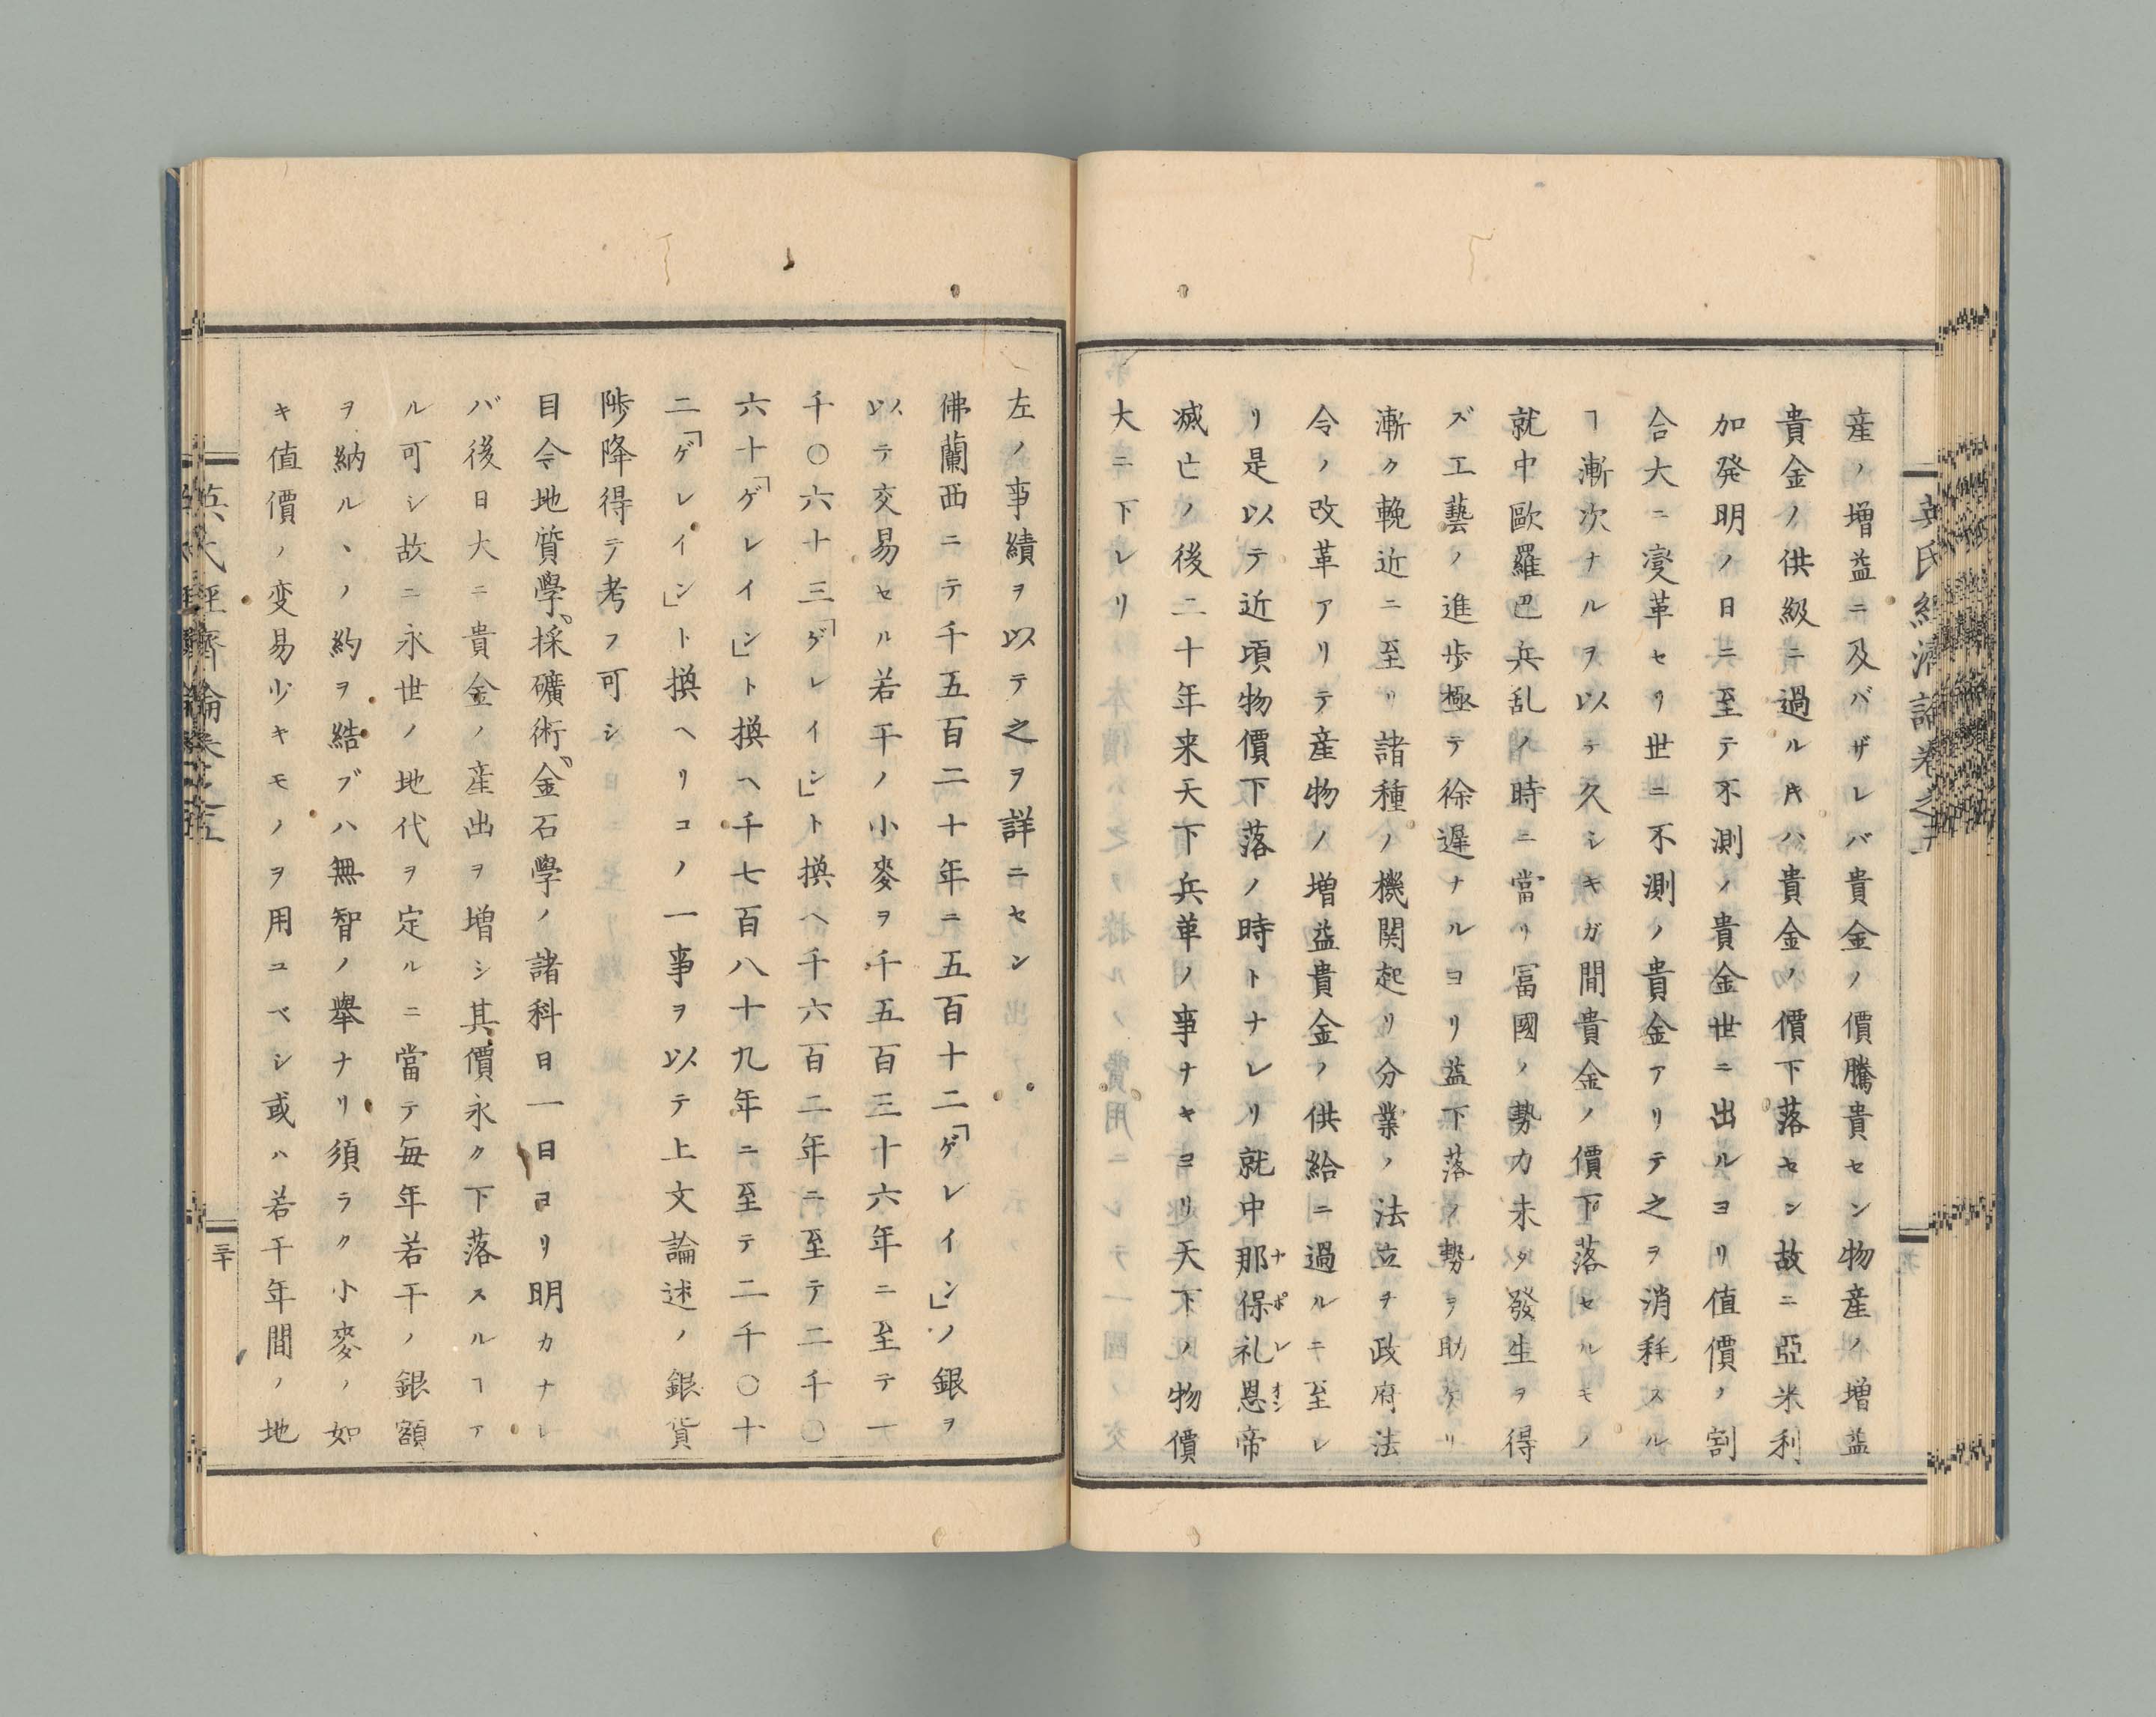 産ノ増益ニ及バザレバ貴金ノ價騰貴セン物産ノ増益
貴金ノ供級ニ過ルキハ貴金ノ價下落セン故ニ亞米利
加発明ノ日ニ至テ不測ノ貴金世ニ出ルヨリ値價ノ割
合大ニ変革セリ世ニ不測ノ貴金アリテ之ヲ消耗スル
ヿ漸次ナルヲ以テ久シキガ間貴金ノ價下落セルモノ
就中歐羅巴兵乱ノ時ニ當リ冨國ノ勢力未タ發生ヲ得
ズ工藝ノ進歩極テ徐遲ナルヨリ益下落ノ勢ヲ助ケリ
漸ク輓近ニ至リ諸種ノ機関起リ分業ノ法立チ政府法
令ノ改革アリテ産物ノ増益貴金ノ供給ニ過ルニ至レ
リ是以テ近頃物價下落ノ時トナレリ就中那保礼恩帝
ナポレオン
滅亡ノ後二十年来天下兵革ノ事ナキヨリ天下ノ物價
大ニ下レリ
英氏経済論巻之五
左ノ事績ヲ以テ之ヲ詳ニセン
佛蘭西ニテ千五百二十年ニ五百十二「ゲレイン」ノ銀ヲ
以テ交易セル若干ノ小麥ヲ千五百三十六年ニ至テ一
千〇六十三「ゲレイン」ト換ヘ千六百二年ニ至テ二千〇
六十「ゲレイン」ト換ヘ千七百八十九年ニ至テ二千〇十
二「ゲレイン」ト換ヘリコノ一事ヲ以テ上文論述ノ銀貨
陟降得テ考フ可シ
目今地質學、採礦術、金石学ノ諸科日一日ヨリ明カナレ
バ後日大ニ貴金ノ産出ヲ増シ其價永ク下落スルヿア
ル可シ故ニ永世ノ地代ヲ定ルニ當テ毎年若干ノ銀額
ヲ納ル丶ノ約ヲ結ブハ無智ノ舉ナリ須ラク小麥ノ如
キ値價ノ変易少キモノヲ用ユベシ或ハ若干年間ノ地
英氏経済論巻之五
三十